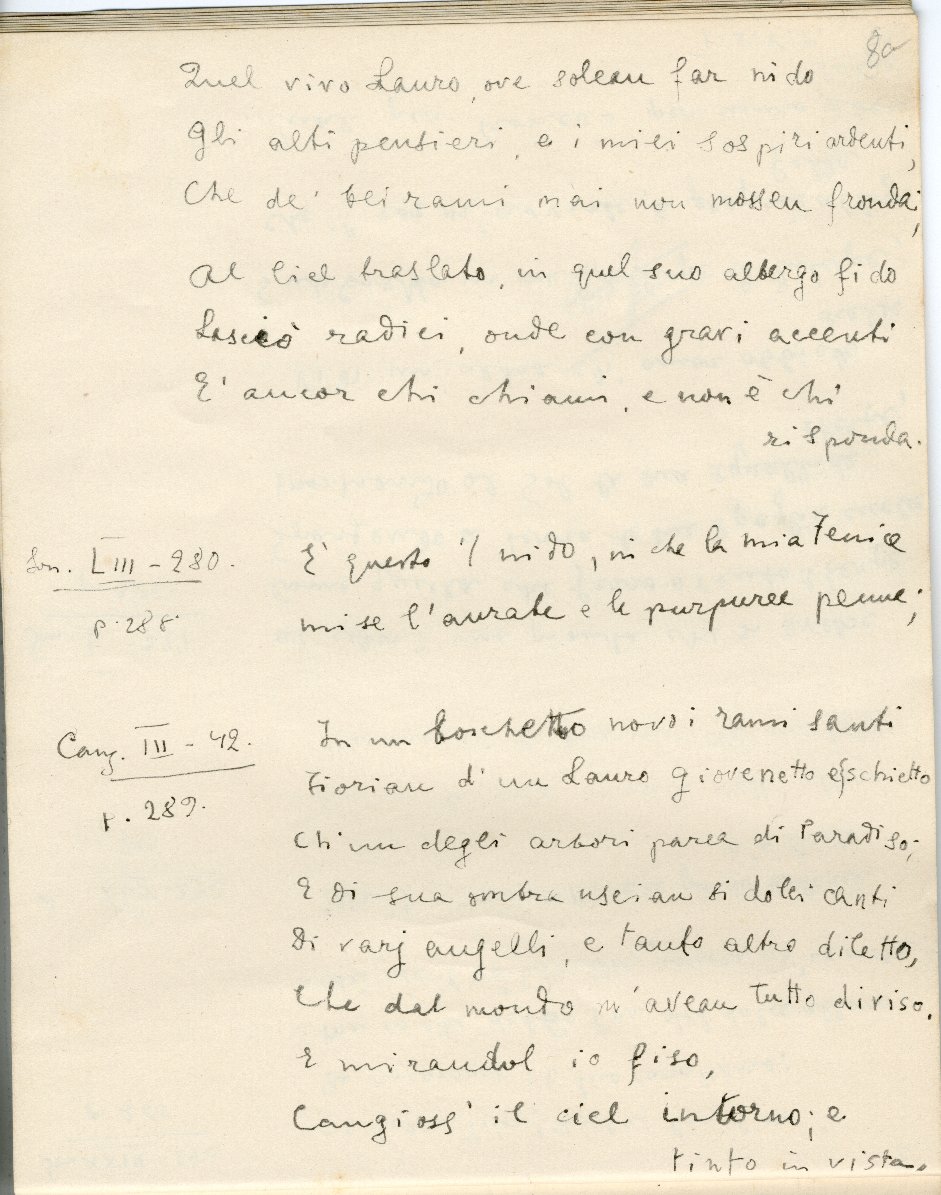 8a
Quel vivo Lauro, ove solean far nido
Gli alti pensieri, e i miei sospiri ardenti,
Che de' bei rami mai non mossen fronda;
Al Ciel traslato, in quel suo albergo fido
Lasciò radici, onde con gravi accenti
E' ancor chi chiami, e non è chi
risponda.
Son. LIII - 280.
p. 288.
E' questo 'l nido, in che la mia Fenice
mise l'aurate e le purpuree penne;
Canz. III - 42.
p. 289.
In un boschetto novo i rami santi
Fiorian d'un Lauro giovenetto e schietto
Ch'un degli arbori parea di Paradiso;
E di sua ombra uscian sì dolci canti
Di varj augelli, e tanto altro diletto,
Che dal mondo m'avean tutto diviso.
E mirandol io fiso,
Cangioss' il ciel intorno; e
tinto in vista.